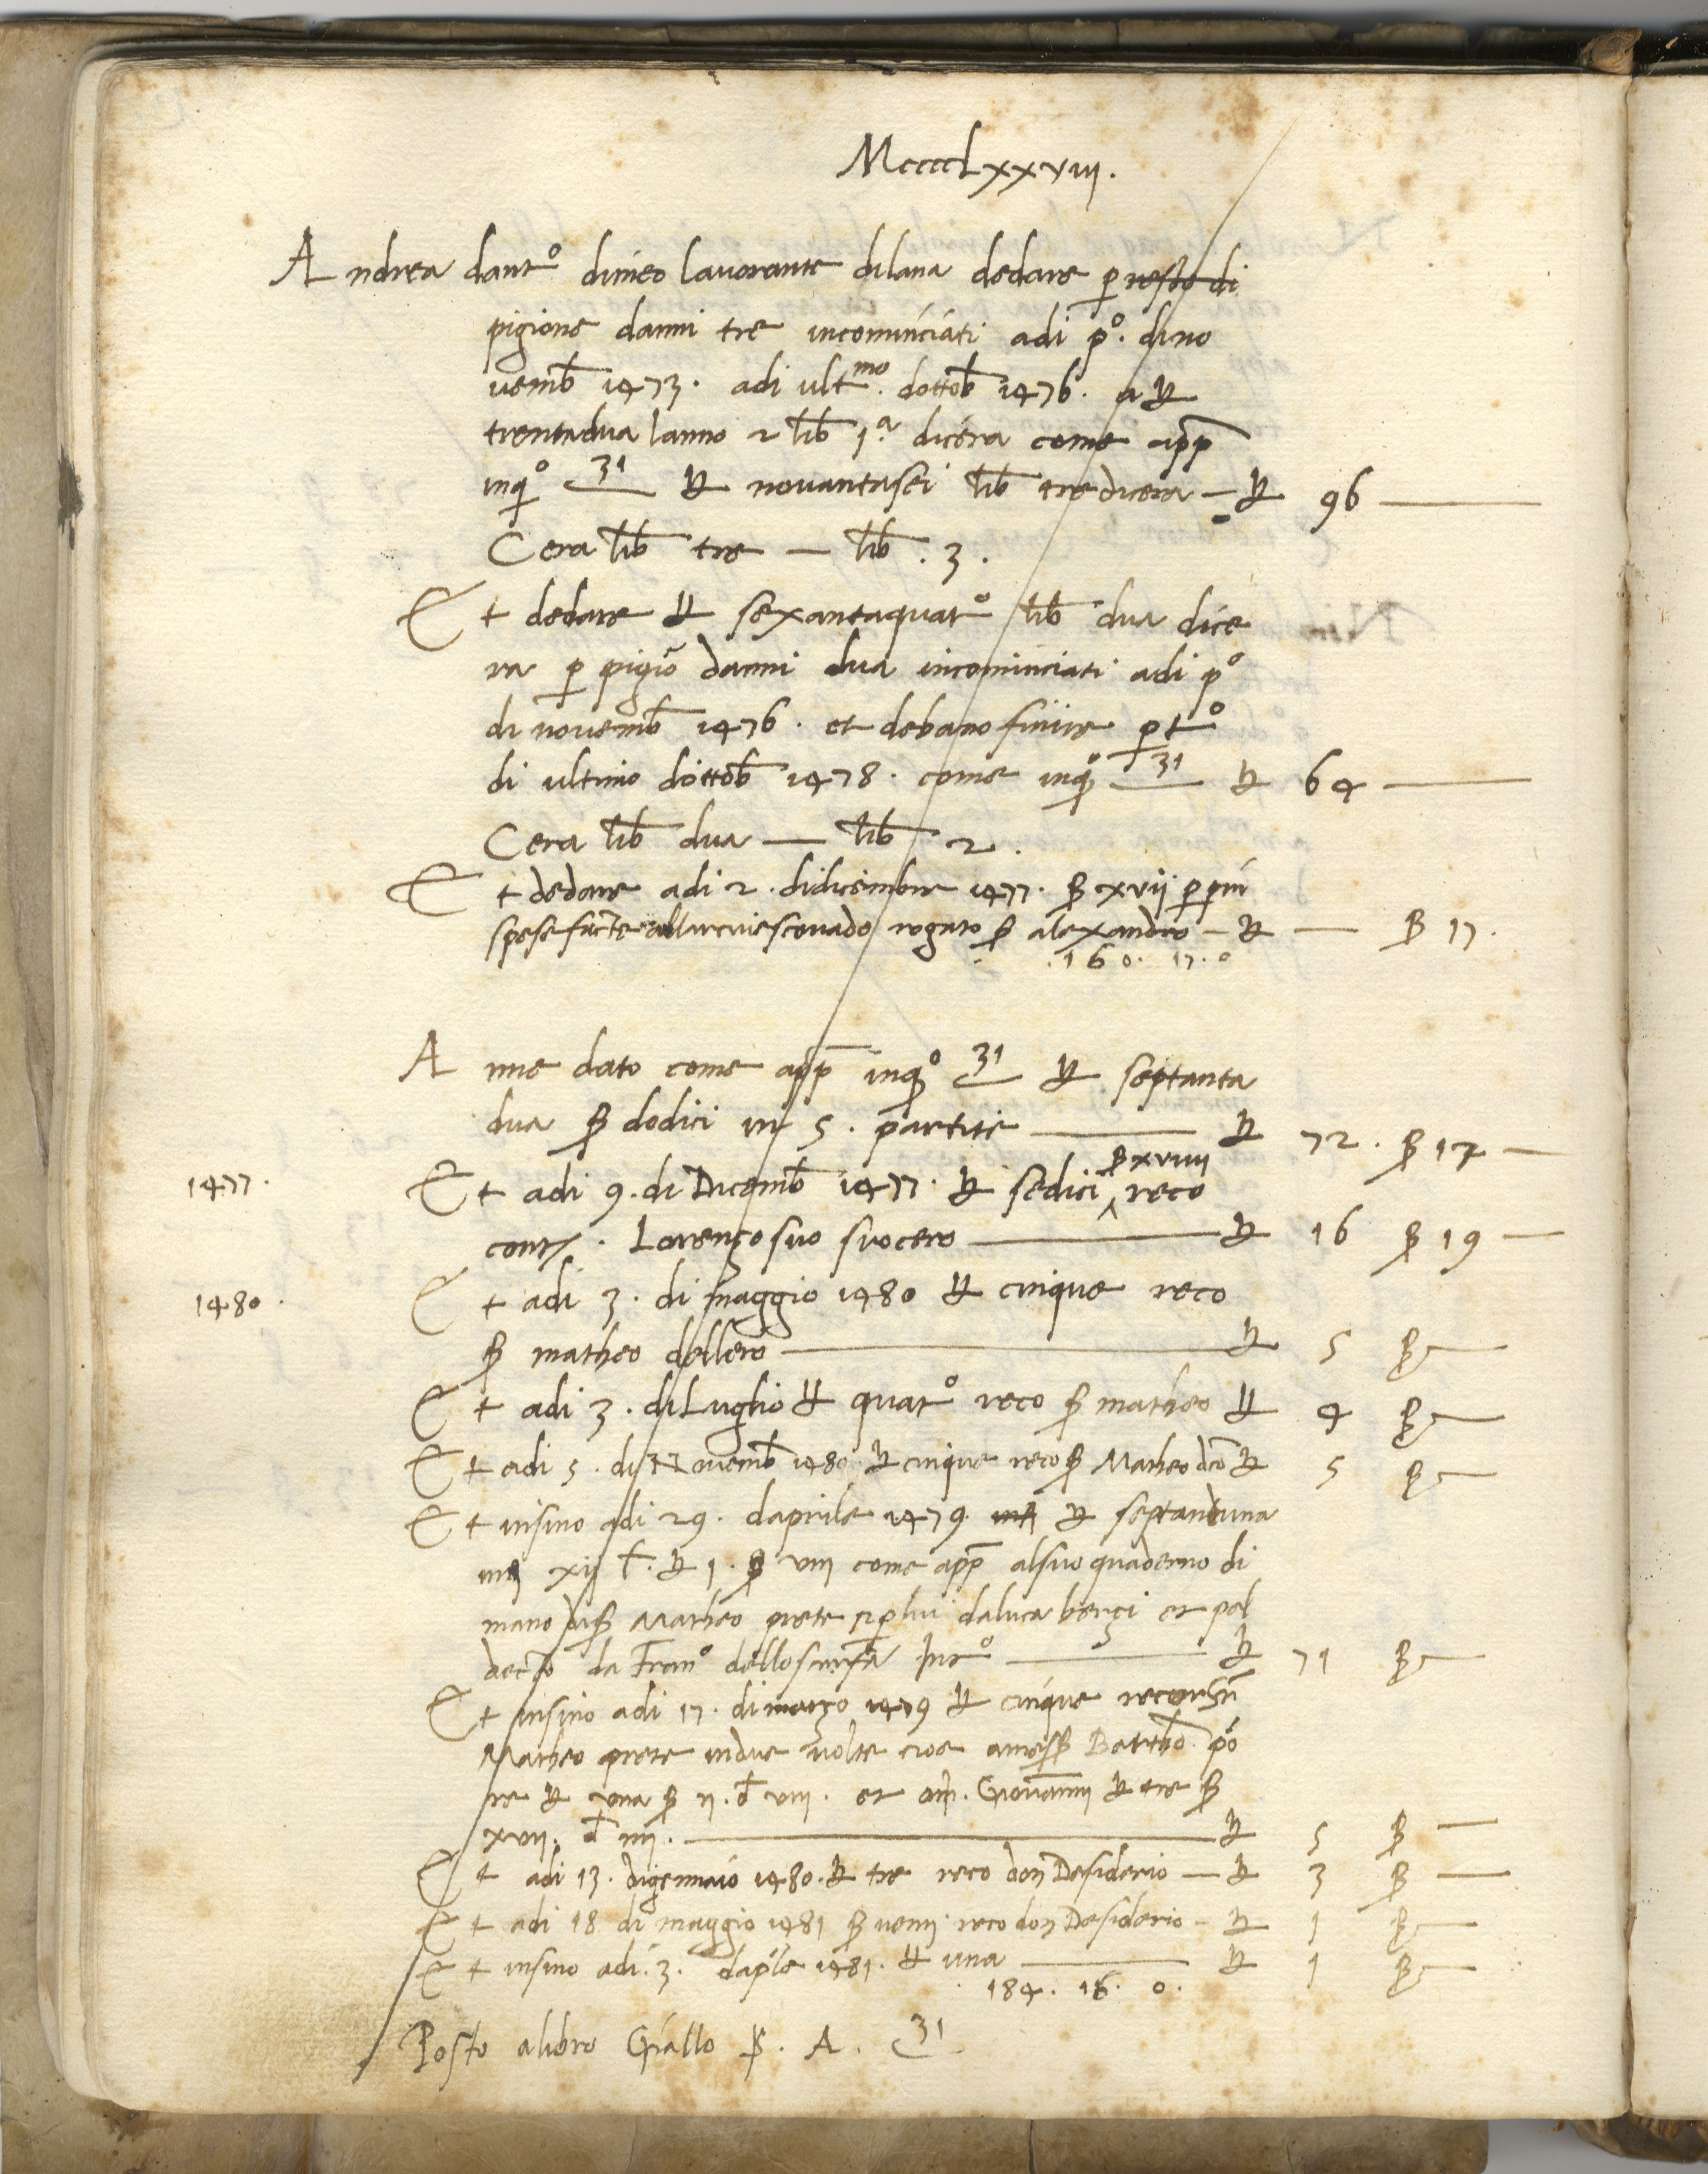 MccccLxxviii.
Andrea dant° dimeo lavorante dilana dedare p resto di
pigione danni tre incominciati adi p°. di no
vemb 1473. adi ultmo. dottob 1476. a ₶
trentadua lanno 2 lib 1a dicera come app
inq° 31 ₶ novantasei lib tre dicera — ₶ 96 —
Cera lib tre — lib. 3.
Et dedare ₶ sexantaquat° lib dua dice
ra p pigiō danni dua incominciati adi p°
di novemb 1476. et debano finire p t°
di ultimo dottob 1478. come inq° 31 ₶ 64 —
Cera lib dua — lib 2.
Et dedare adi 2. didicembre 1477. ß xvii p piu
spese facte allarcivescovado rogato ß alexandro — ₶ — ß 17.
.160. 17. 0
Anne dato come app inq° 31 ₶ septanta
dua ß dodici in 5. partite — ₶ 72. ß 17 —
1477. Et adi 9. di Dicemb 1477. ₶ sedici ß xviiii reco
cont. Lorenzo suo suocero — ₶ 16 ß 19 —
1480. Et adi 3. di maggio 1480 ₶ cinque reco
ß matheo dellero — ₶ 5 ß —
Et adi 3. di Luglio ₶ quat° reco ß matheo ₶ 4 ß —
Et adi 5. di Novemb 1480 ₶ cinque reco ß Matheo dcō ₶ 5 ß —
Et insino adi 29. daprile 1479. ₶ septanduna
in xii t. ₶ 1. ß viii come app alsuo quaderno di
mano di ß Matheo prete p lui daluca berzi et pel
decto da Fran° — ₶ 71 ß —
Et insino adi 17. di marzo 1479 ₶ cinque reco
Matheo prete indue volte cioe Barthō. pō
re ₶ una ß ii. d viii. et Giovanni ₶ tre ß
xvii. d iiii. — ₶ 5 ß —
Et adi 13. digennaio 1480. ₶ tre reco don Desiderio — ₶ 3 ß —
Et adi 18 di maggio 1481 ß venti reco don Desiderio — ₶ 1 ß —
Et insino adi. 3. daple 1481. ₶ una — ₶ 1 ß —
184. 16. 0.
Posto alibro Giallo ß. A. 31